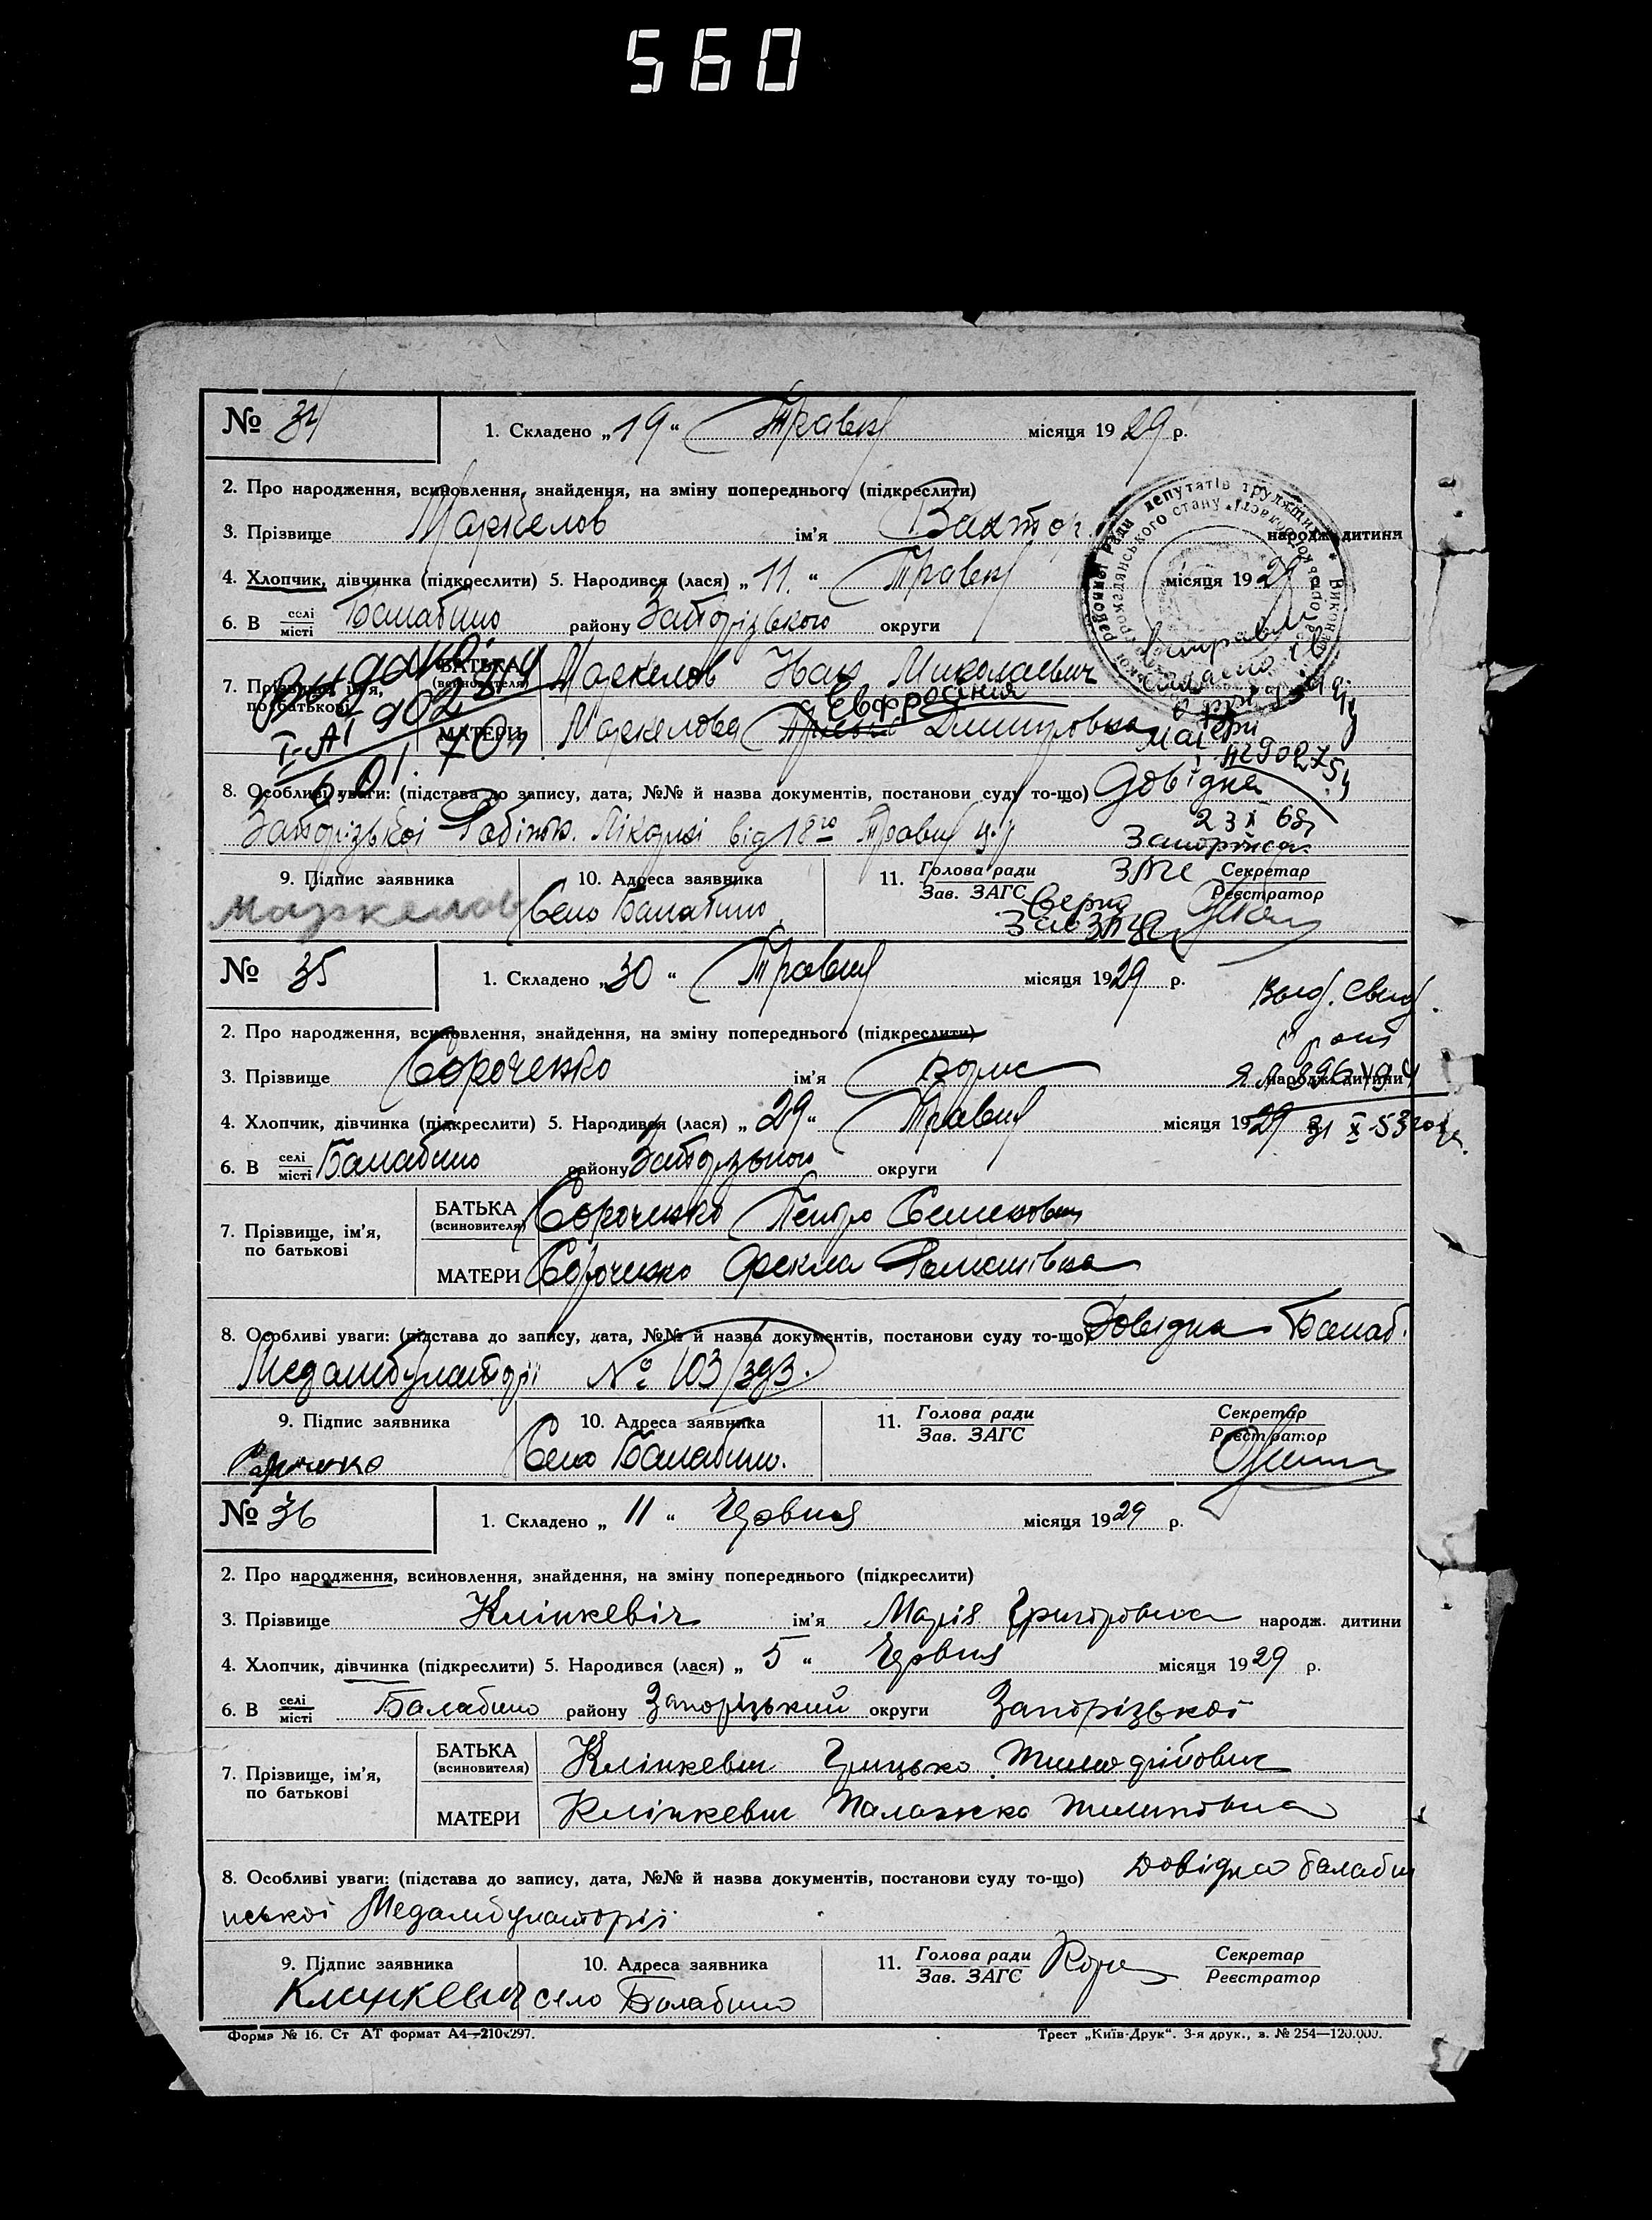 560
№ 34 1. Складено „19“ Травня місяця 1929 р.
2. Про народження, всиновлення, знайдення, на зміну попереднього (підкреслити)
3. Прізвище Маркелов ім'я Виктор народж. дитини
4. Хлопчик, дівчинка (підкреслити) 5. Народився (лася) „11.“ Травня місяця 1929
6. В селі/місті Балабино району Запорізького округи
7. Прізвище, ім'я, по батькові БАТЬКА (всиновителя) Маркелов Миколаевич
Евфросинія
МАТЕРИ Маркелова Дмитровна
матери
8. Особливі уваги: (підстава до запису, дата, №№ й назва документів, постанови суду то-що) Довідка
Запорізької Робітн. Лікарні від 18го Травня ц.р.
23 X 68г
9. Підпис заявника 10. Адреса заявника 11. Голова ради/Зав. ЗАГС Секретар/Реєстратор
Маркелов Село Балабино
№ 35 1. Складено „30“ Травня місяця 1929 р.
2. Про народження, всиновлення, знайдення, на зміну попереднього (підкреслити)
3. Прізвище Сороченко ім'я Борис народж. дитини
4. Хлопчик, дівчинка (підкреслити) 5. Народився (лася) „29“ Травня місяця 1929 31 X-53 года.
6. В селі/місті Балабино району Запорізького округи
7. Прізвище, ім'я, по батькові БАТЬКА (всиновителя) Сороченко Петро Семенович
МАТЕРИ Сороченко Фекла Романівна
8. Особливі уваги: (підстава до запису, дата, №№ й назва документів, постанови суду то-що) Довідка Балаб.
Медамбулаторії № 103/393.
9. Підпис заявника 10. Адреса заявника 11. Голова ради/Зав. ЗАГС Секретар/Реєстратор
Село Балабино.
№ 36 1. Складено „11“ Червня місяця 1929 р.
2. Про народження, всиновлення, знайдення, на зміну попереднього (підкреслити)
3. Прізвище Клінкевіч ім'я Марія Григоровна народж. дитини
4. Хлопчик, дівчинка (підкреслити) 5. Народився (лася) „5“ Червня місяця 1929 р.
6. В селі/місті Балабино району Запорізький округи Запорізької
7. Прізвище, ім'я, по батькові БАТЬКА (всиновителя) Клінкевич Грицько Тимофійович
МАТЕРИ Клінкевич Палажка
8. Особливі уваги: (підстава до запису, дата, №№ й назва документів, постанови суду то-що) Довідка Балабин
нської Медамбулаторії
9. Підпис заявника 10. Адреса заявника 11. Голова ради/Зав. ЗАГС Секретар/Реєстратор
Клинкевич село Балабино
Форма № 16. Ст АТ формат А4—210x297. Трест „Київ-Друк“. 3-я друк., з. № 254—120.000.